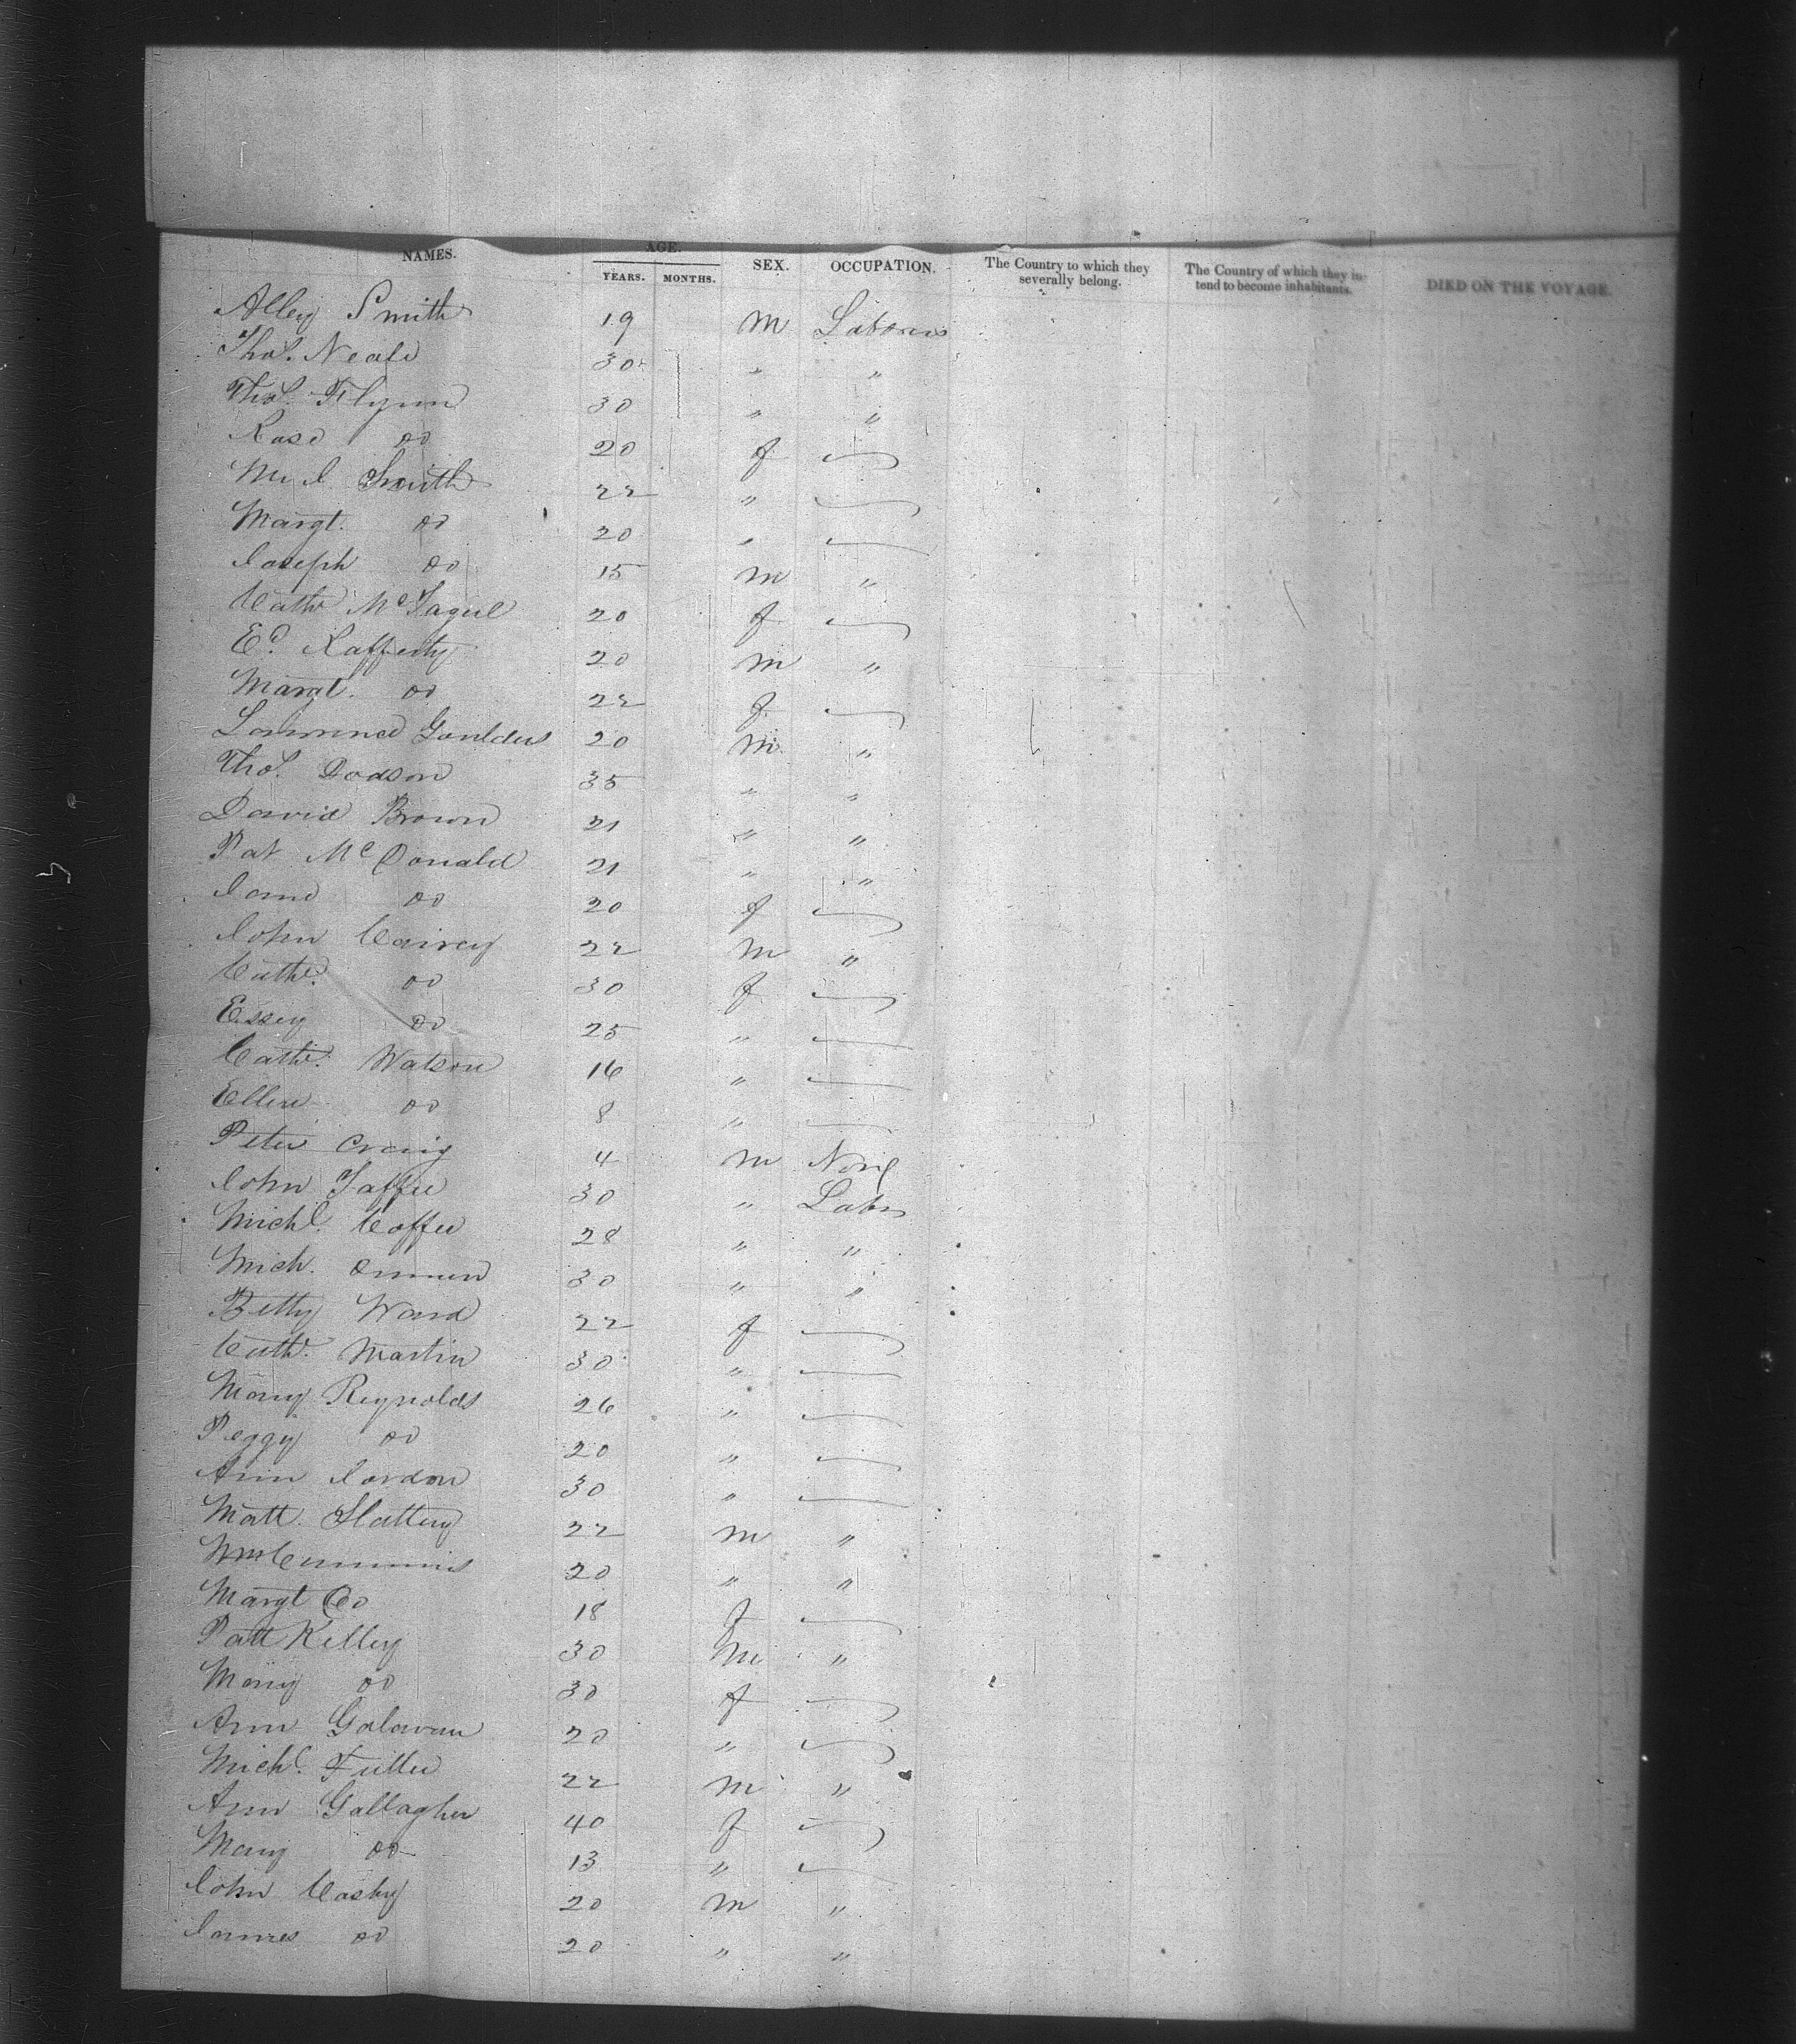 NAMES. AGE. YEARS. MONTHS. SEX. OCCUPATION. The Country to which they severally belong. The Country of which they intend to become inhabitants. DIED ON THE VOYAGE.
Alley Smith 19 m Laborer
Thos. Neale 30 " "
Thos. Flynn 30 " "
Rose do 20 f —
Smith 22 " —
Margt. do 20 " —
Joseph do 15 m "
Cathe McTague 20 f —
Ed. Rafferty 20 m "
Margt. do 22 f —
Lawrence Goulders 20 m "
Thos. Dodson 35 " "
David Brown 21 " "
Pat McDonald 21 " "
Jane do 20 f —
John Cairey 22 m "
Cathe. do 30 f —
Essey do 25 " —
Cathe. Watson 16 " —
Ellen do 8 " —
Peter Craig 4 m None
John Taffee 30 " Labr
Michl. Coffee 28 " "
Mich. 30 " "
Betty Ward 22 f —
Cathe. Martin 30 " —
Mary Reynolds 26 " —
Peggy do 20 " —
Ann Jordon 30 " —
Matt. Slattery 22 m "
Wm Cummins 20 " "
Margt Do 18 f —
Patt Kelley 30 m "
Mary do 30 f —
Ann Galavan 20 " —
Michl. Fuller 22 m "
Ann Gallagher 40 f —
Mary do 13 " —
John Casby 20 m "
James do 20 " "